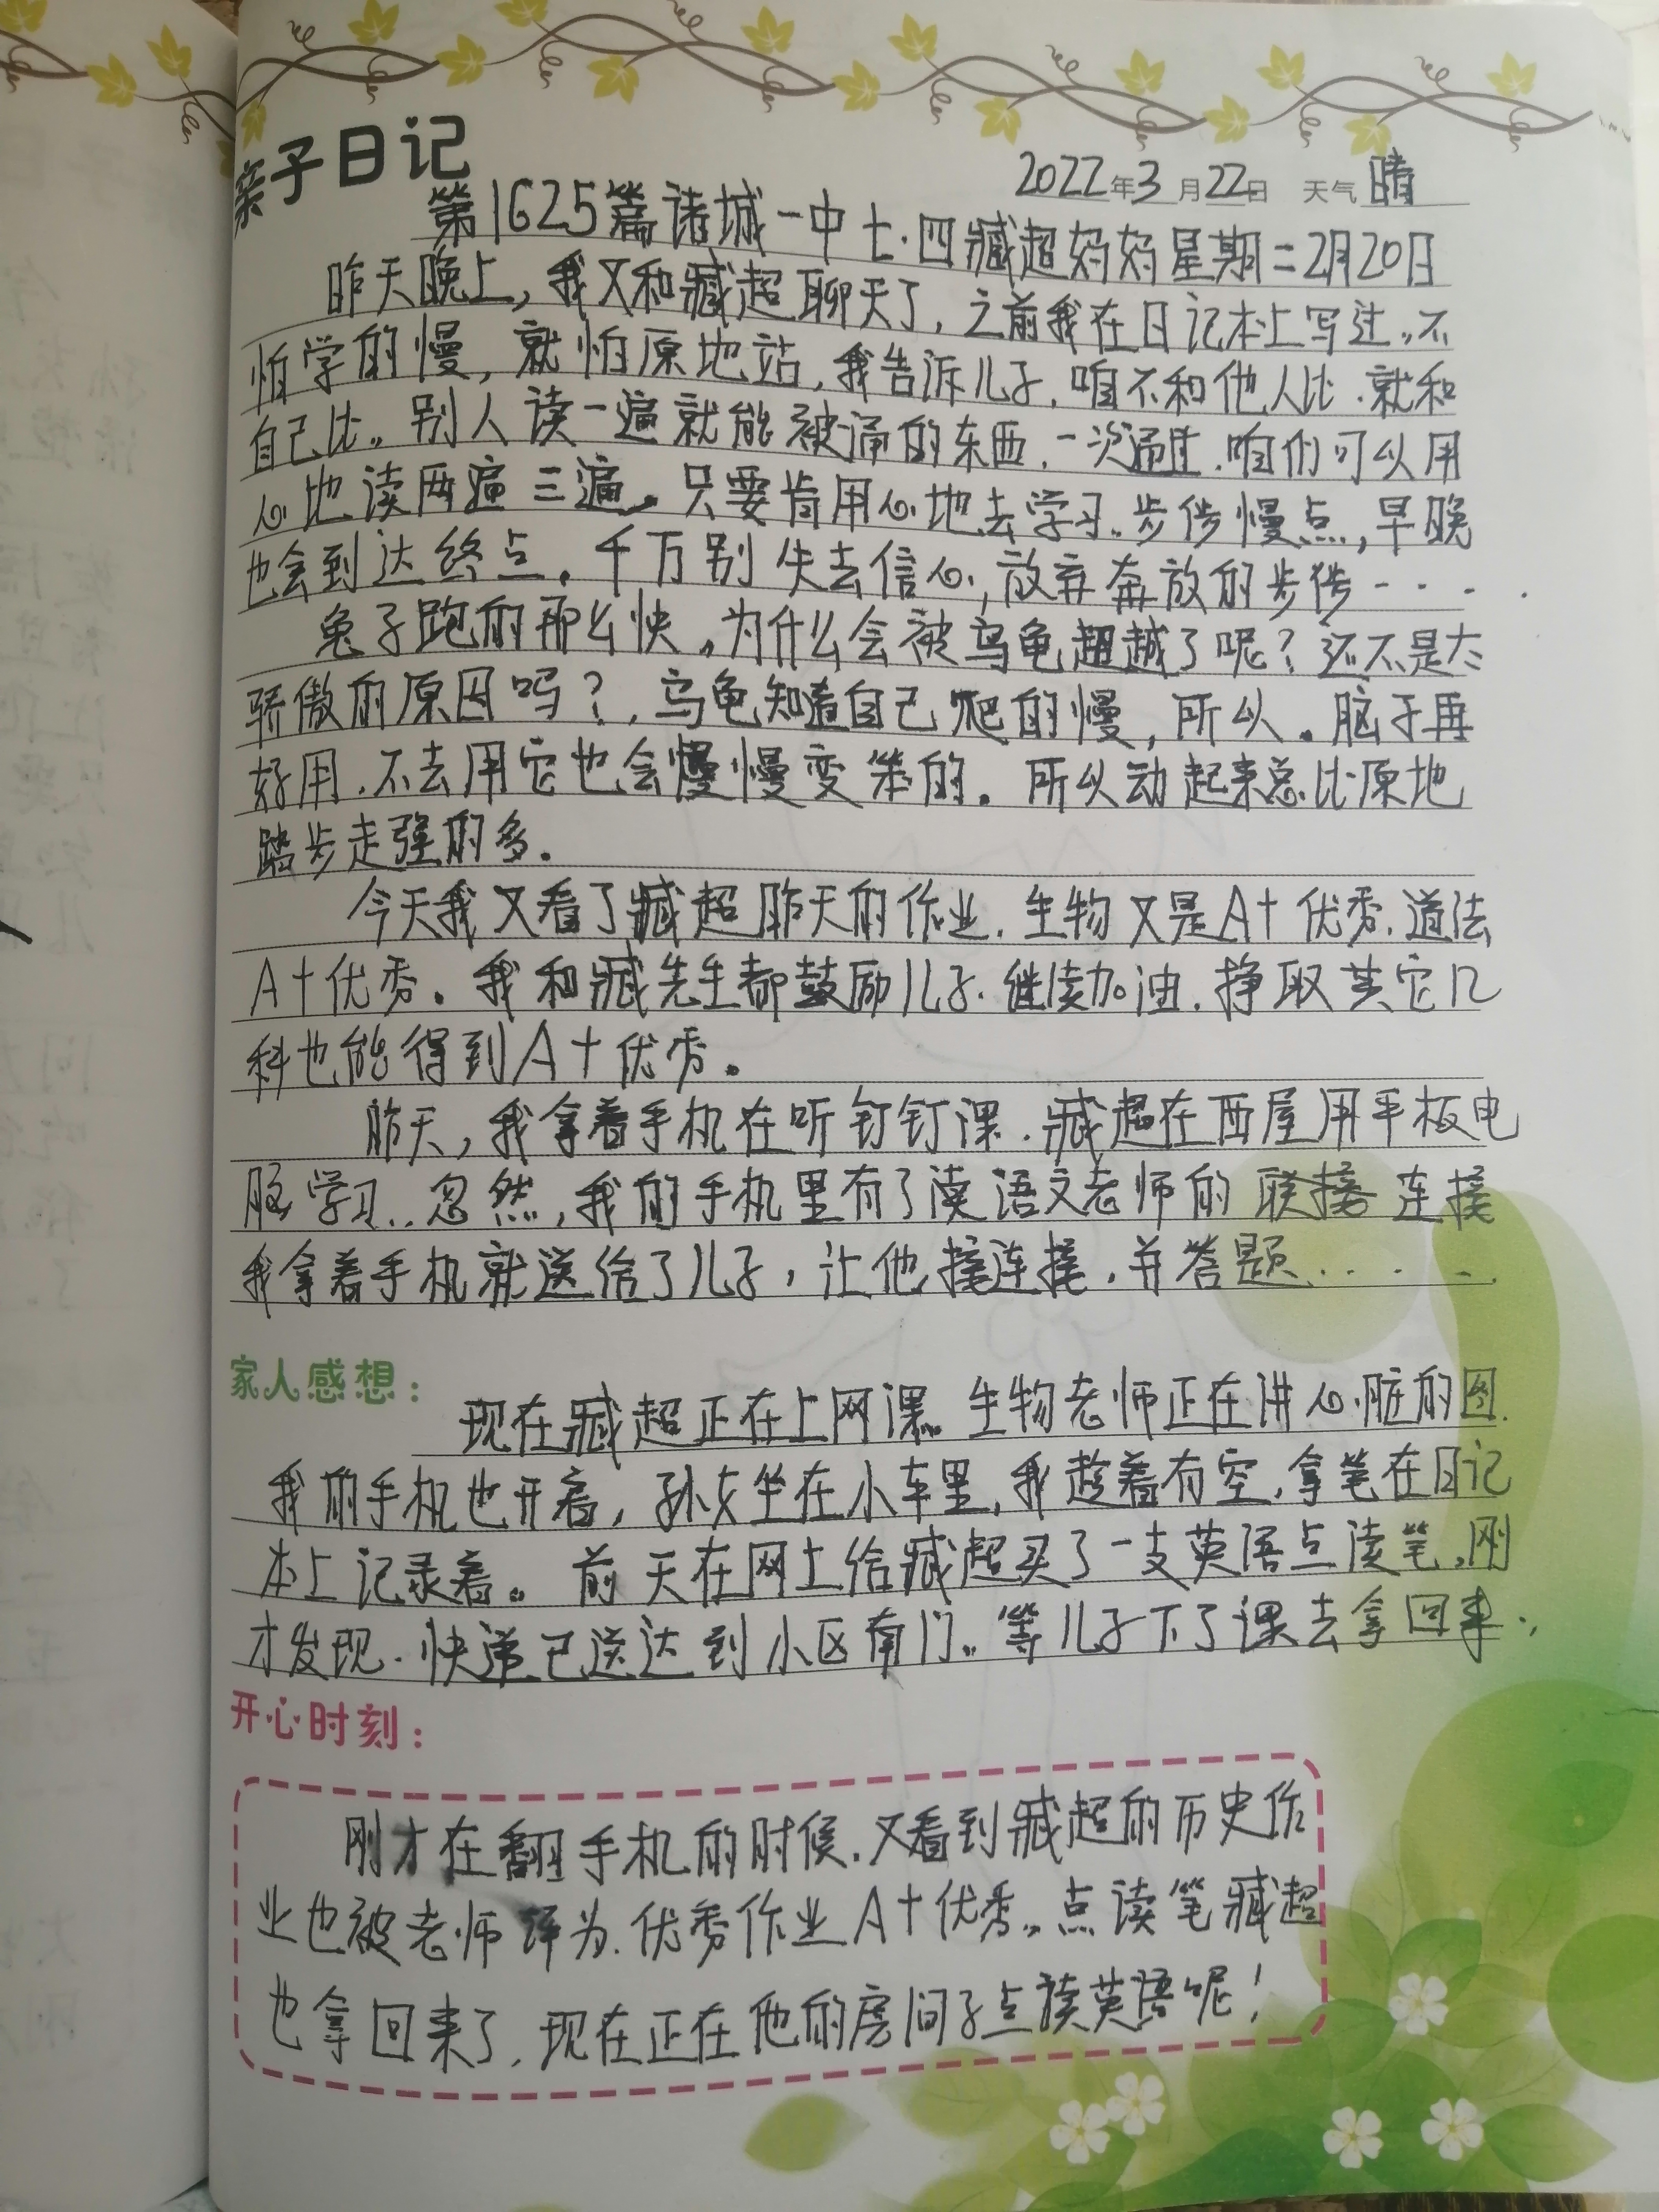 亲子日记
2022年3月22日 天气 晴
第1625篇诸城一中七.四臧超妈妈星期二2月20日
昨天晚上，我又和臧超聊天了，之前我在日记本上写过。不
怕学的慢，就怕原地站，我告诉儿子，咱不和他人比.就和
自己比。别人读一遍就能被诵的东西，一次通过，咱们可以用
心地读两遍三遍。只要肯用心地去学习。步伐慢点，早晚
也会到达终点。千万别失去信心，放弃奔放的步伐……
兔子跑的那么快，为什么会被乌龟超越了呢？还不是太
骄傲的原因吗？，乌龟知道自己爬的慢，所以。脑子再
好用，不去用它也会慢慢变笨的。所以动起来总比原地
踏步走强的多。
今天我又看了臧超昨天的作业，生物又是A+优秀，道法
A+优秀。我和臧先生都鼓励儿子，继续加油，挣取其它几
科也能得到A+优秀。
昨天，我拿着手机在听钉钉课，臧超在西屋用平板电
脑学习，忽然，我的手机里有了读语文老师的联接连接
我拿着手机就送给了儿子，让他接连接，并答题……
家人感想：
现在臧超正在上网课。生物老师正在讲心脏的图.
我的手机也开着，孙女坐在小车里，我趁着有空，拿笔在日记
本上记录着。前天在网上给臧超买了一支英语点读笔，刚
才发现.快递已送达到小区南门。等儿子下了课去拿回来.
开心时刻：
刚才在翻手机的时候，又看到臧超的历史作
业也被老师评为.优秀作业A+优秀。点读笔臧超
也拿回来了，现在正在他的房间子点读英语呢！